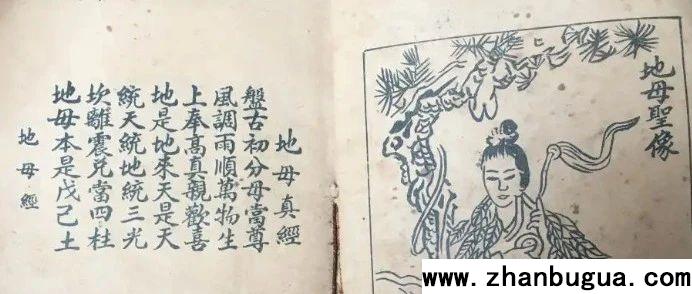 地母聖像
地母真經
盤古初分母當尊
風調雨順萬物生
上奉高真親歡喜
地是地來天是天
統天統地統三光
坎離震兌當四柱
地母本是戊己土
地母經
www.zhanbugua.com